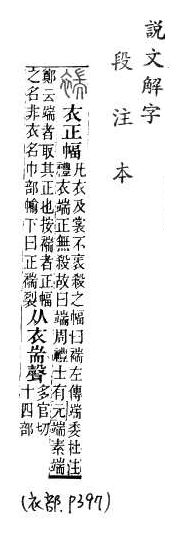 說文解字
段注本
褍
衣正幅
凡衣及裳不衺殺之幅曰褍左傳端委杜注
禮衣端正無殺故曰端周禮士有元端素端
鄭云端者取其正也按褍者正幅
之名非衣名巾部㡏下曰正褍裂
从衣耑聲
多官切
十四部
(衣部.P397)